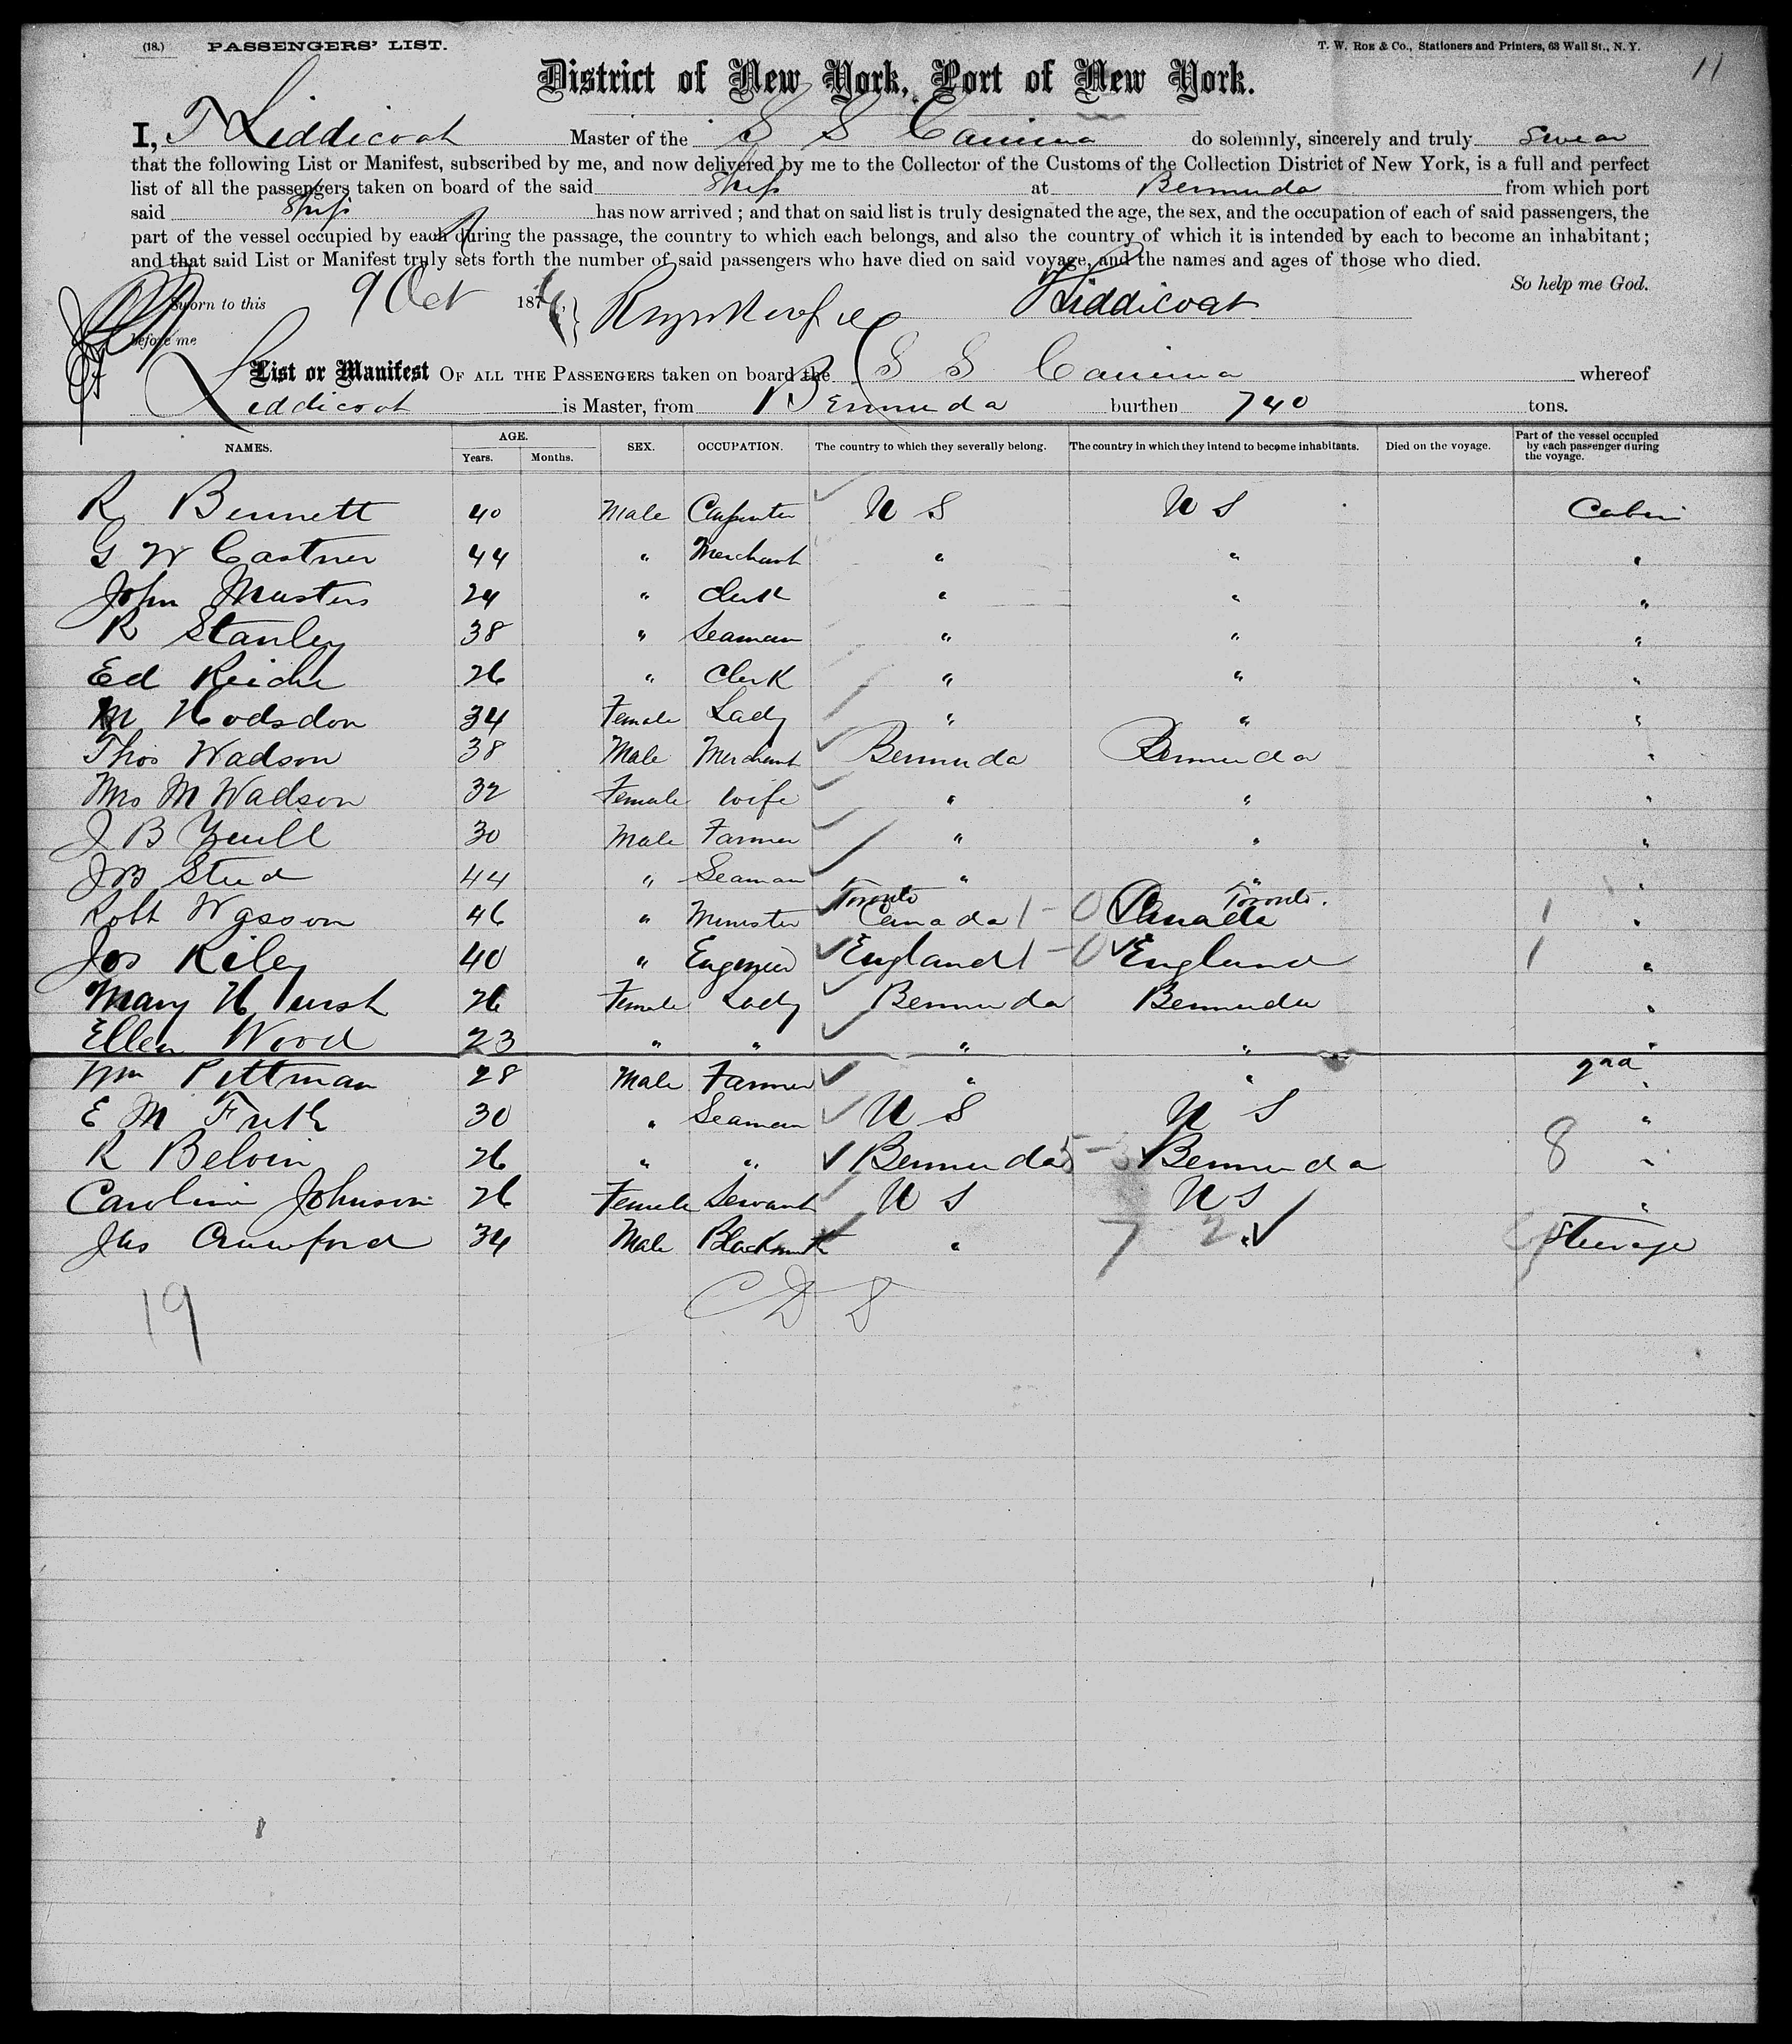 (18.) PASSENGERS' LIST. T. W. Roe & Co., Stationers and Printers, 63 Wall St., N. Y. 11
District of New York, Port of New York.
I, T Liddicoat Master of the S S Canima do solemnly, sincerely and truly Swear
that the following List or Manifest, subscribed by me, and now delivered by me to the Collector of the Customs of the Collection District of New York, is a full and perfect
list of all the passengers taken on board of the said Ship at Bermuda from which port
said Ship has now arrived ; and that on said list is truly designated the age, the sex, and the occupation of each of said passengers, the
part of the vessel occupied by each during the passage, the country to which each belongs, and also the country of which it is intended by each to become an inhabitant ;
and that said List or Manifest truly sets forth the number of said passengers who have died on said voyage, and the names and ages of those who died.
So help me God.
Sworn to this 9 Oct 1876 Liddicoat
before me
List or Manifest OF ALL THE PASSENGERS taken on board the S S Canima whereof
Liddicoat is Master, from Bermuda burthen 740 tons.
NAMES. AGE. Years. Months. SEX. OCCUPATION. The country to which they severally belong. The country in which they intend to become inhabitants. Died on the voyage. Part of the vessel occupied by each passenger during the voyage.
R Bennett 40 Male Carpenter U S U S Cabin
G W Castner 44 " Merchant " " "
John Masters 24 " Clerk " " "
R Stanley 38 " Seaman " " "
Ed Reiche 26 " Clerk " " "
M Hodsdon 34 Female Lady " " "
Thos Wadson 38 Male Merchant Bermuda Bermuda "
Mrs M Wadson 32 Female Wife " " "
J B Yuill 30 Male Farmer " " "
Steed 44 " Seaman " " "
Robt Wasson 46 " Minister Toronto Canada 1 - 0 Toronto. Canada 1 "
Jos Riley 40 " Engineer England 1 - 0 England 1 "
Mary Hurst 26 Female Lady Bermuda Bermuda "
Ellen Wood 23 " " " " "
Wm Pittman 28 Male Farmer " " 2nd "
E M Frith 30 " Seaman U S U S "
R Belvin 26 " " Bermuda 5 - 3 Bermuda 8 "
Caroline Johnson 26 Female Servant U S U S "
Jas Crawford 34 Male Blacksmith " 7 2 " Steerage
19